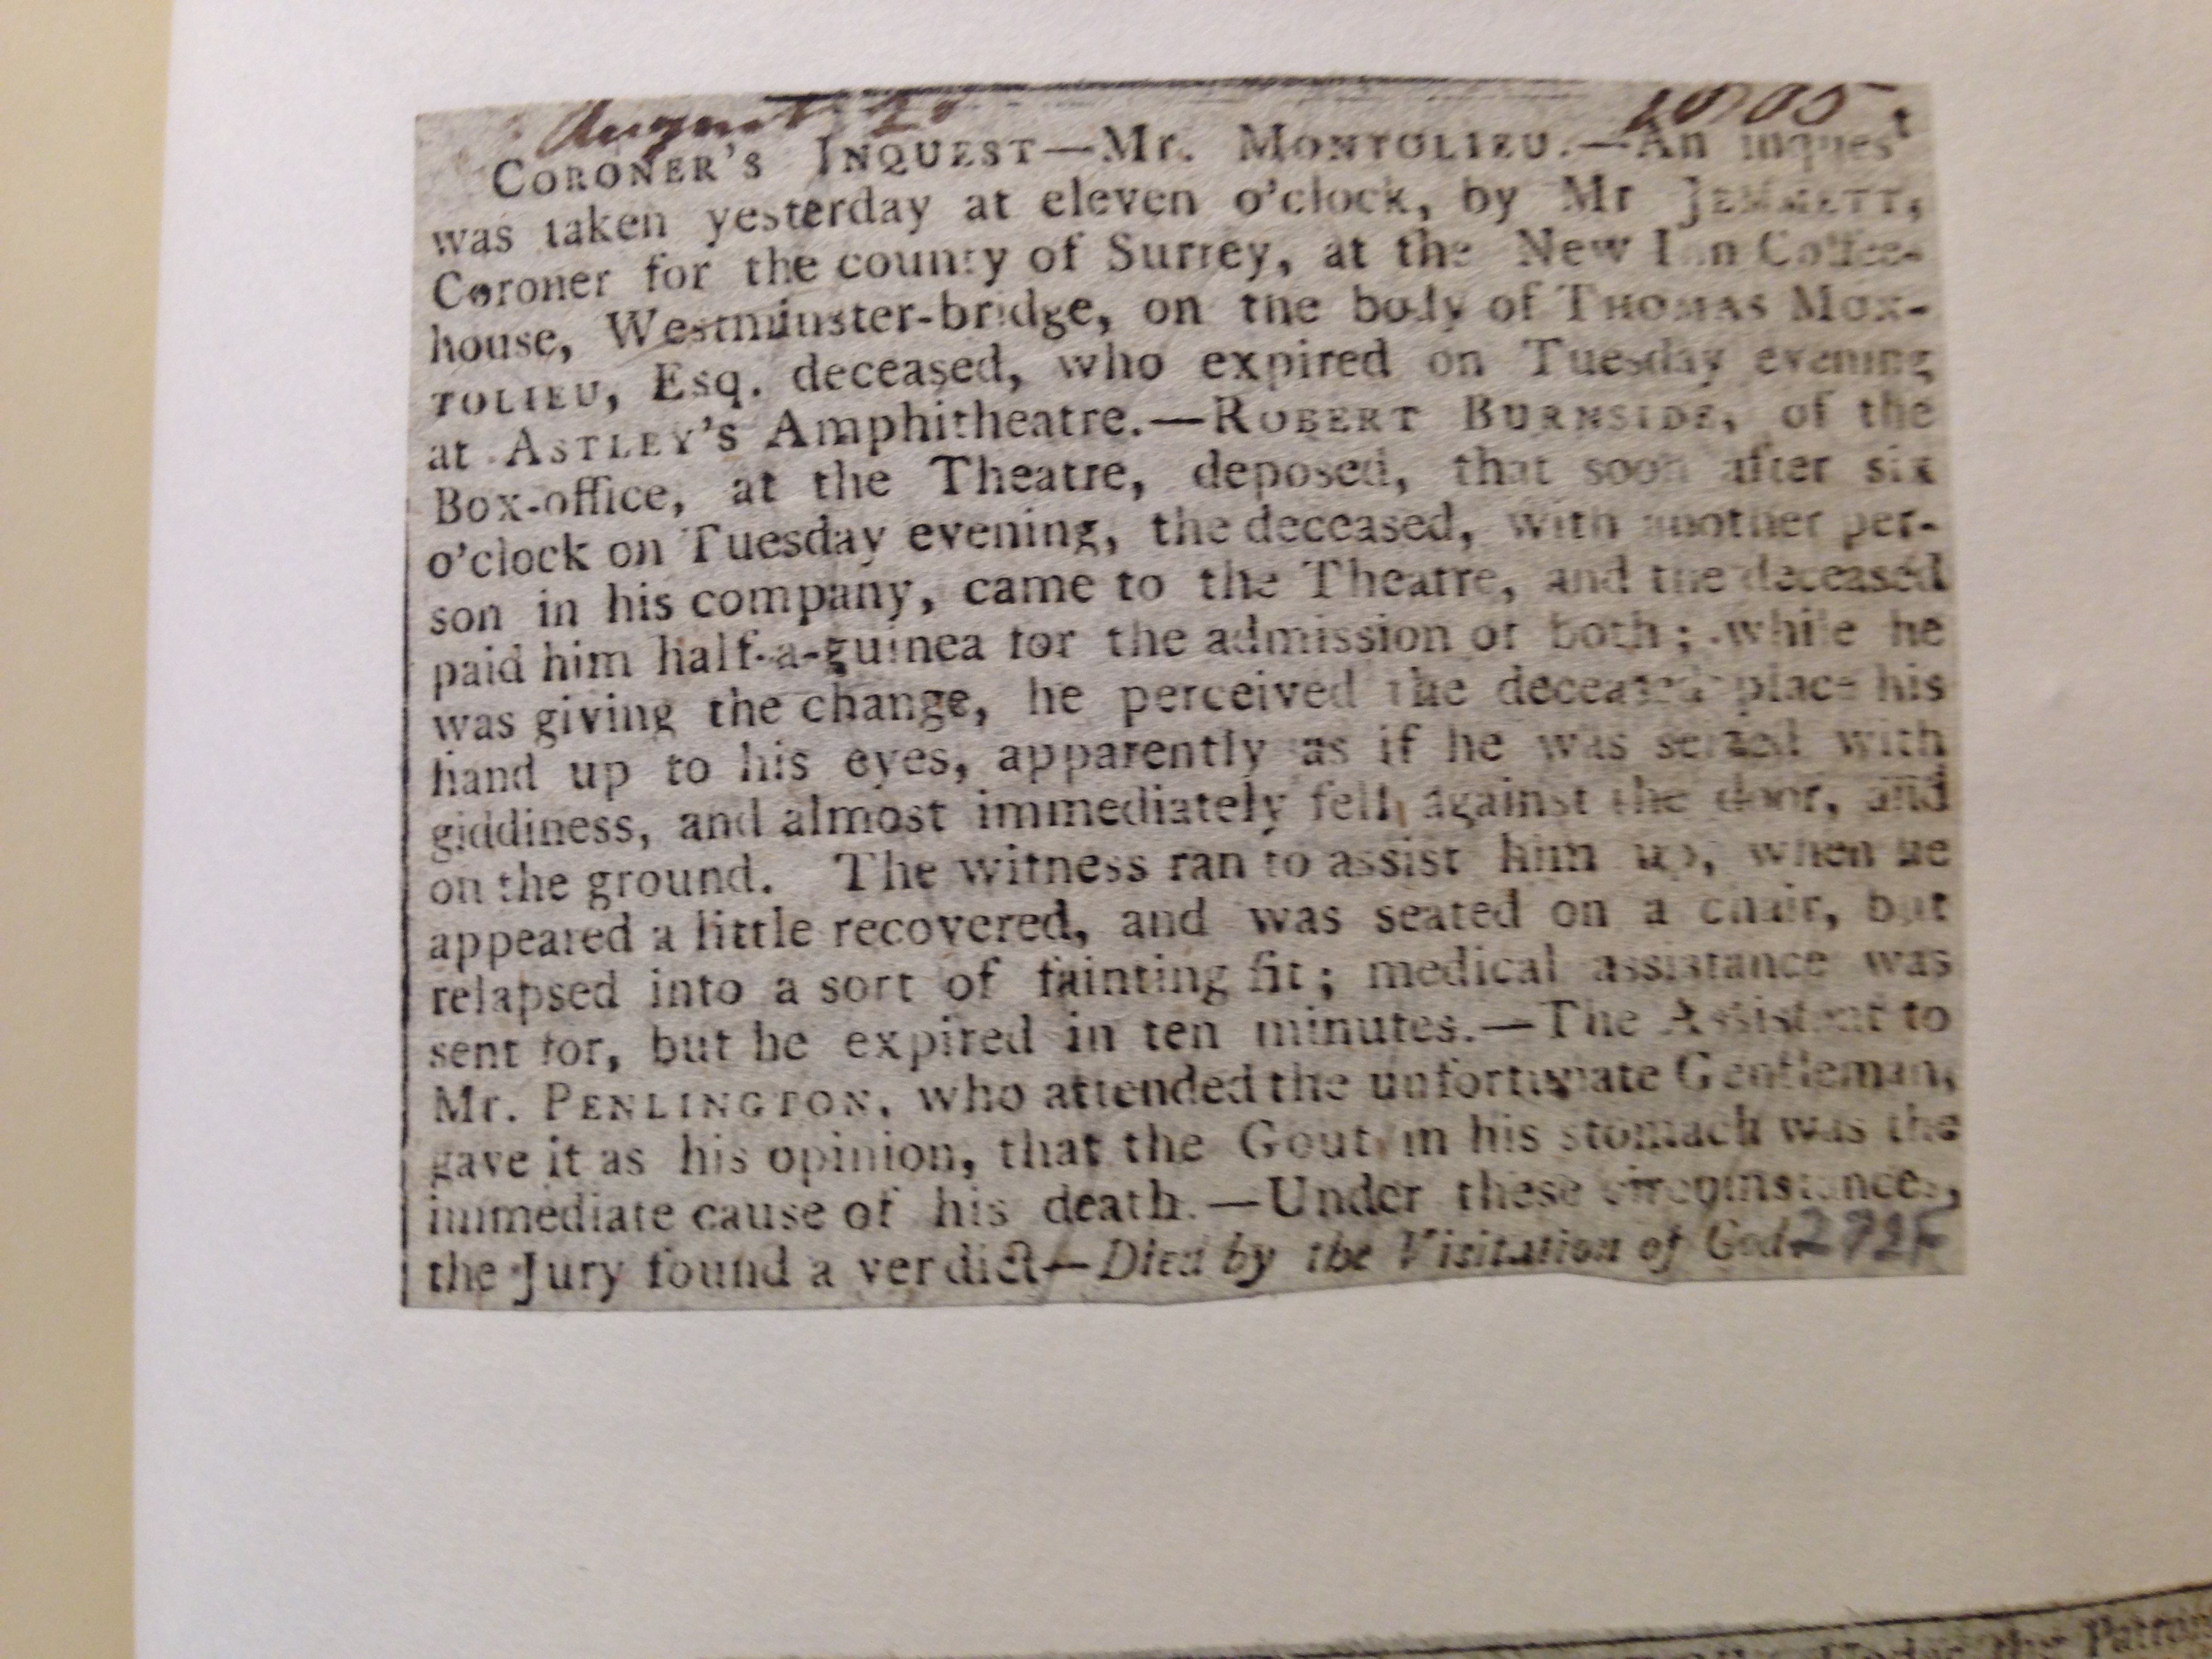 August 1805.
CORONER'S INQUEST—Mr. MONTOLIEU.—An inquest
was taken yesterday at eleven o'clock, by Mr JEMMETT,
Coroner for the county of Surrey, at the New Inn Coffee-
house, Westminster-bridge, on the body of THOMAS MON-
TOLIEU, Esq. deceased, who expired on Tuesday evening
at ASTLEY'S Amphitheatre.—ROBERT BURNSIDE, of the
Box-office, at the Theatre, deposed, that soon after six
o'clock on Tuesday evening, the deceased, with another per-
son in his company, came to the Theatre, and the deceased
paid him half-a-guinea for the admission of both; while he
was giving the change, he perceived the deceased place his
hand up to his eyes, apparently as if he was seized with
giddiness, and almost immediately fell against the door, and
on the ground. The witness ran to assist him up, when he
appeared a little recovered, and was seated on a chair, but
relapsed into a sort of fainting fit; medical assistance was
sent for, but he expired in ten minutes.—The Assistant to
Mr. PENLINGTON, who attended the unfortunate Gentleman,
gave it as his opinion, that the Gout in his stomach was the
immediate cause of his death.—Under these circumstances,
the Jury found a verdict—Died by the Visitation of God.
Under the Patron